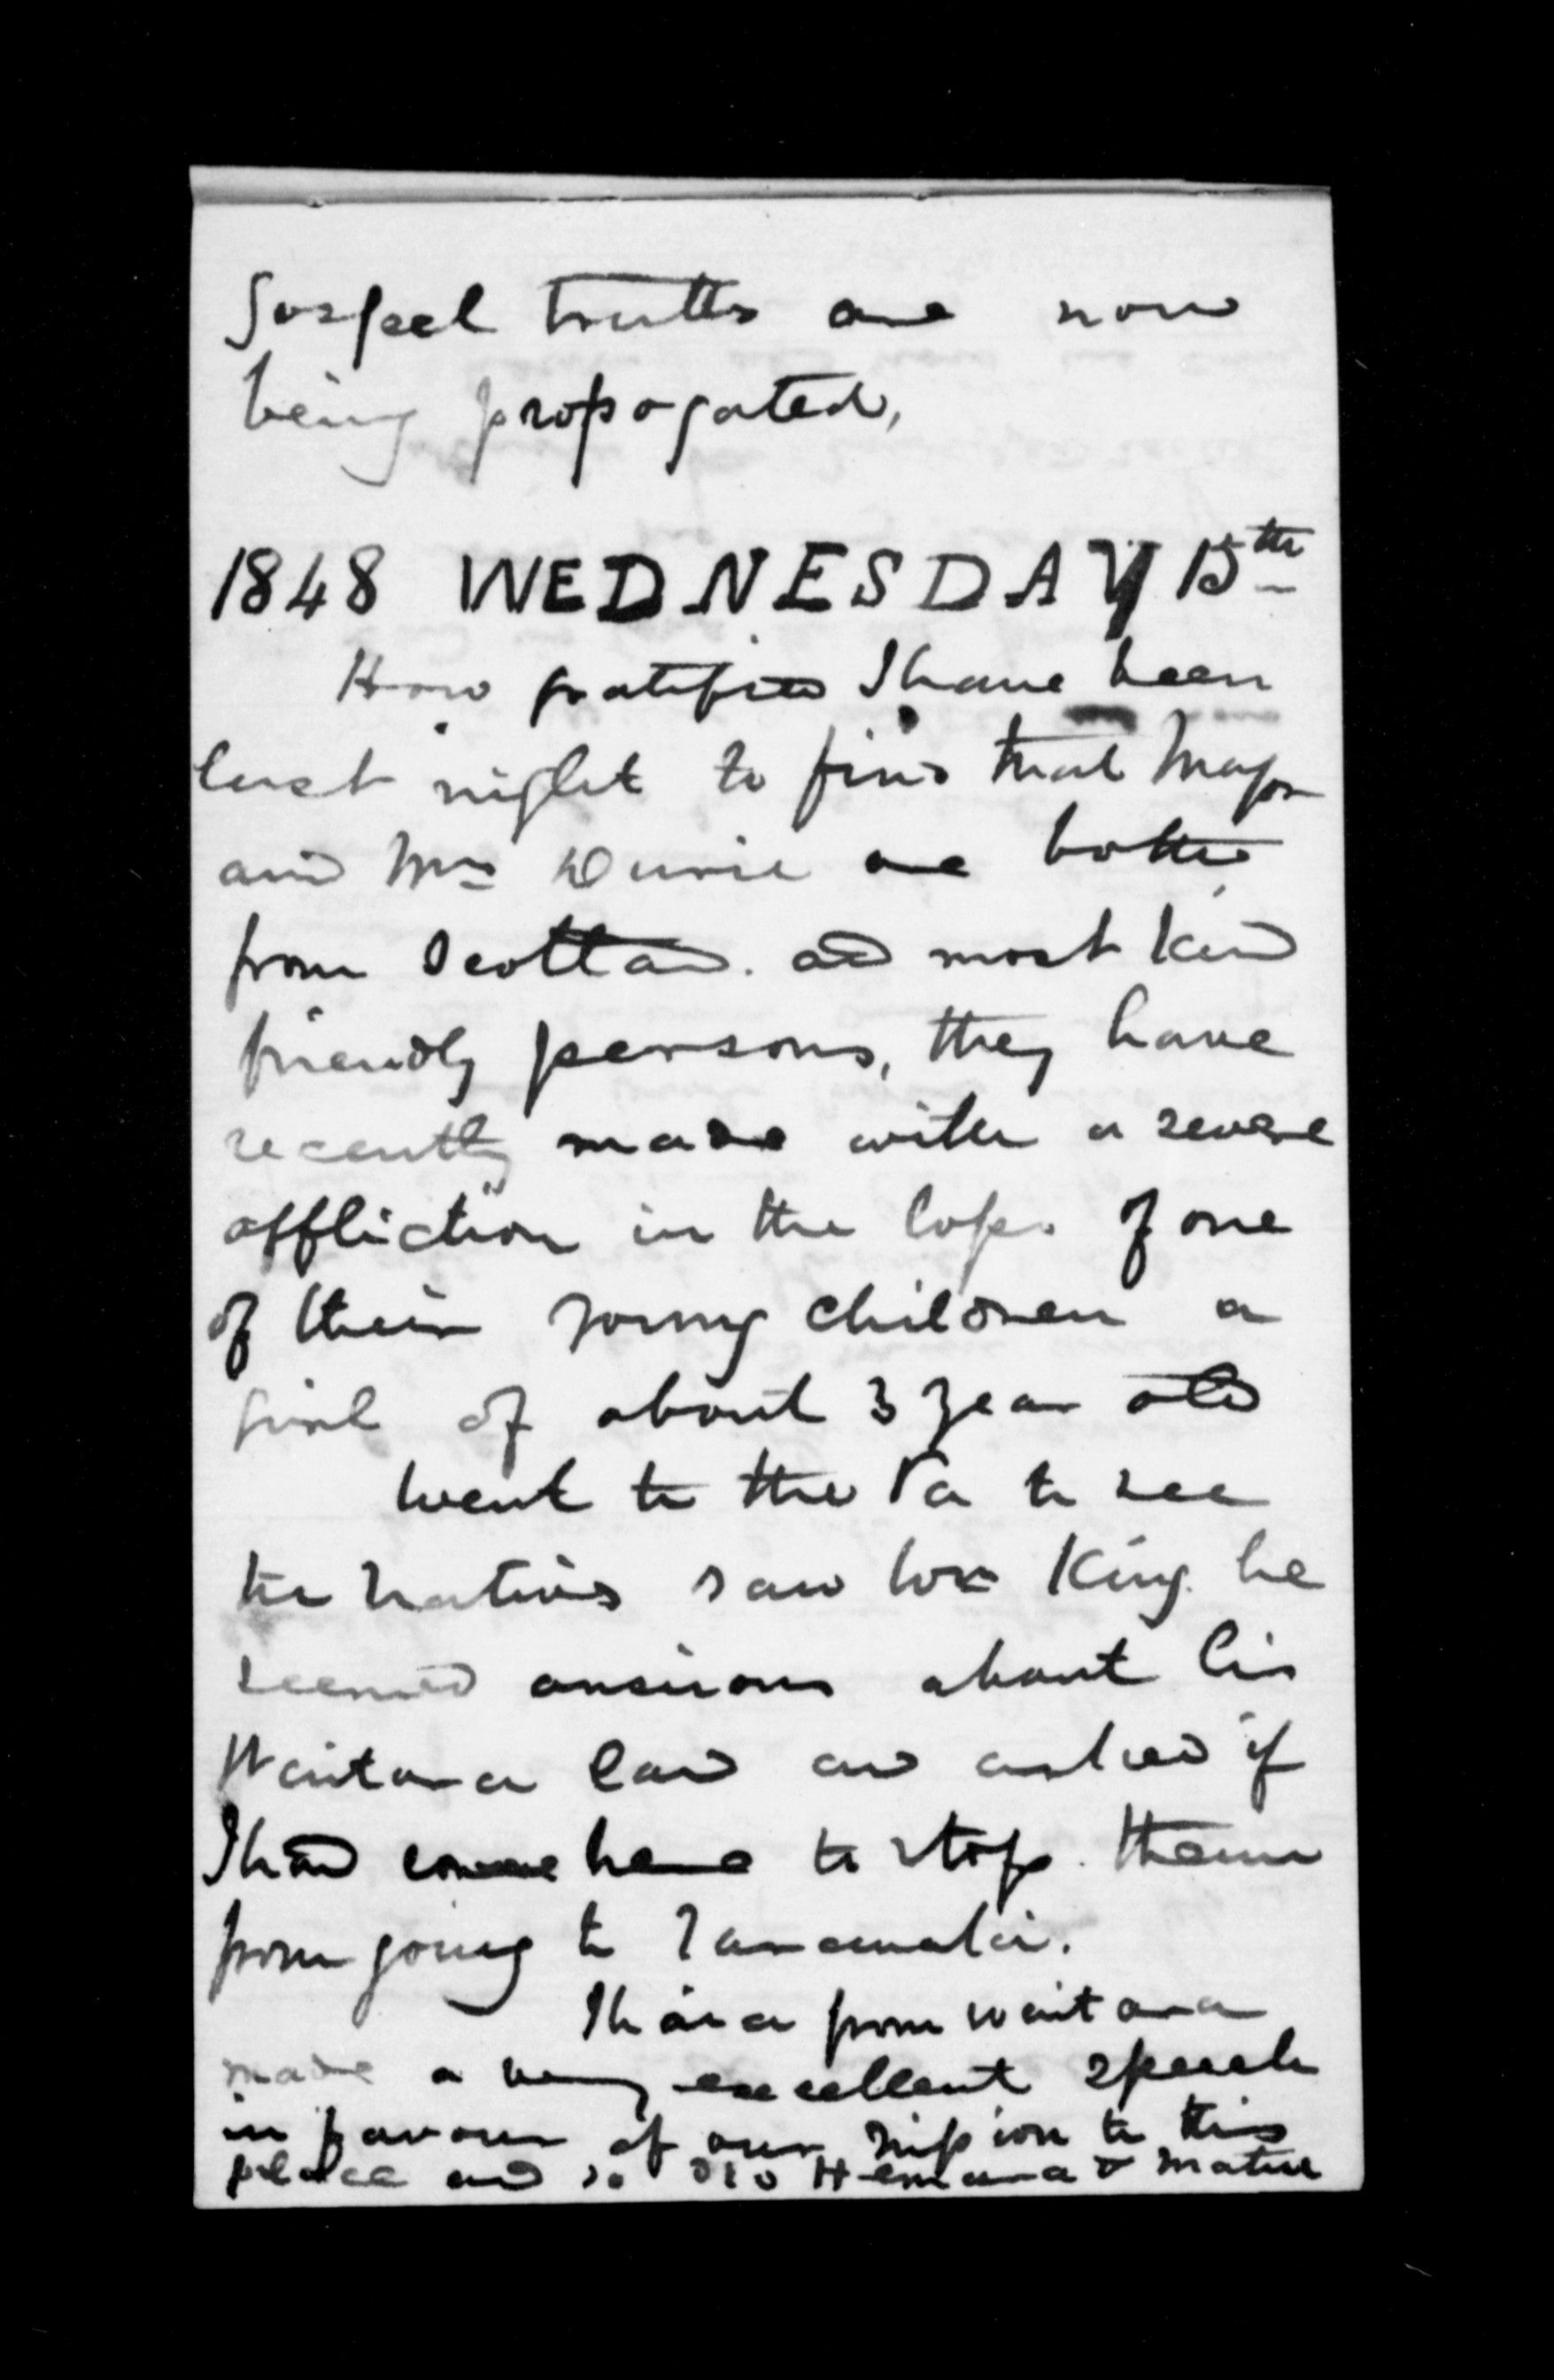 Gospel truths are now
being propogated,
1848 WEDNESDAY 15th
How gratified I have been
last night to find that Major
and Mrs Durie are both
from Scotland. and most kind
friendly persons, they have
recently made with a severe
affliction in the loss of one
of their young children a
girl of about 3 year old
Went to the Pa to see
the natives saw Wm King he
seemed anxious about his
Waitara land and asked if
I had come here to stop them
from going to Taranaki.
Ihaia from Waitara
made a very excellent speech
in favour of our mission to this
place and so did Hemara & Matiu